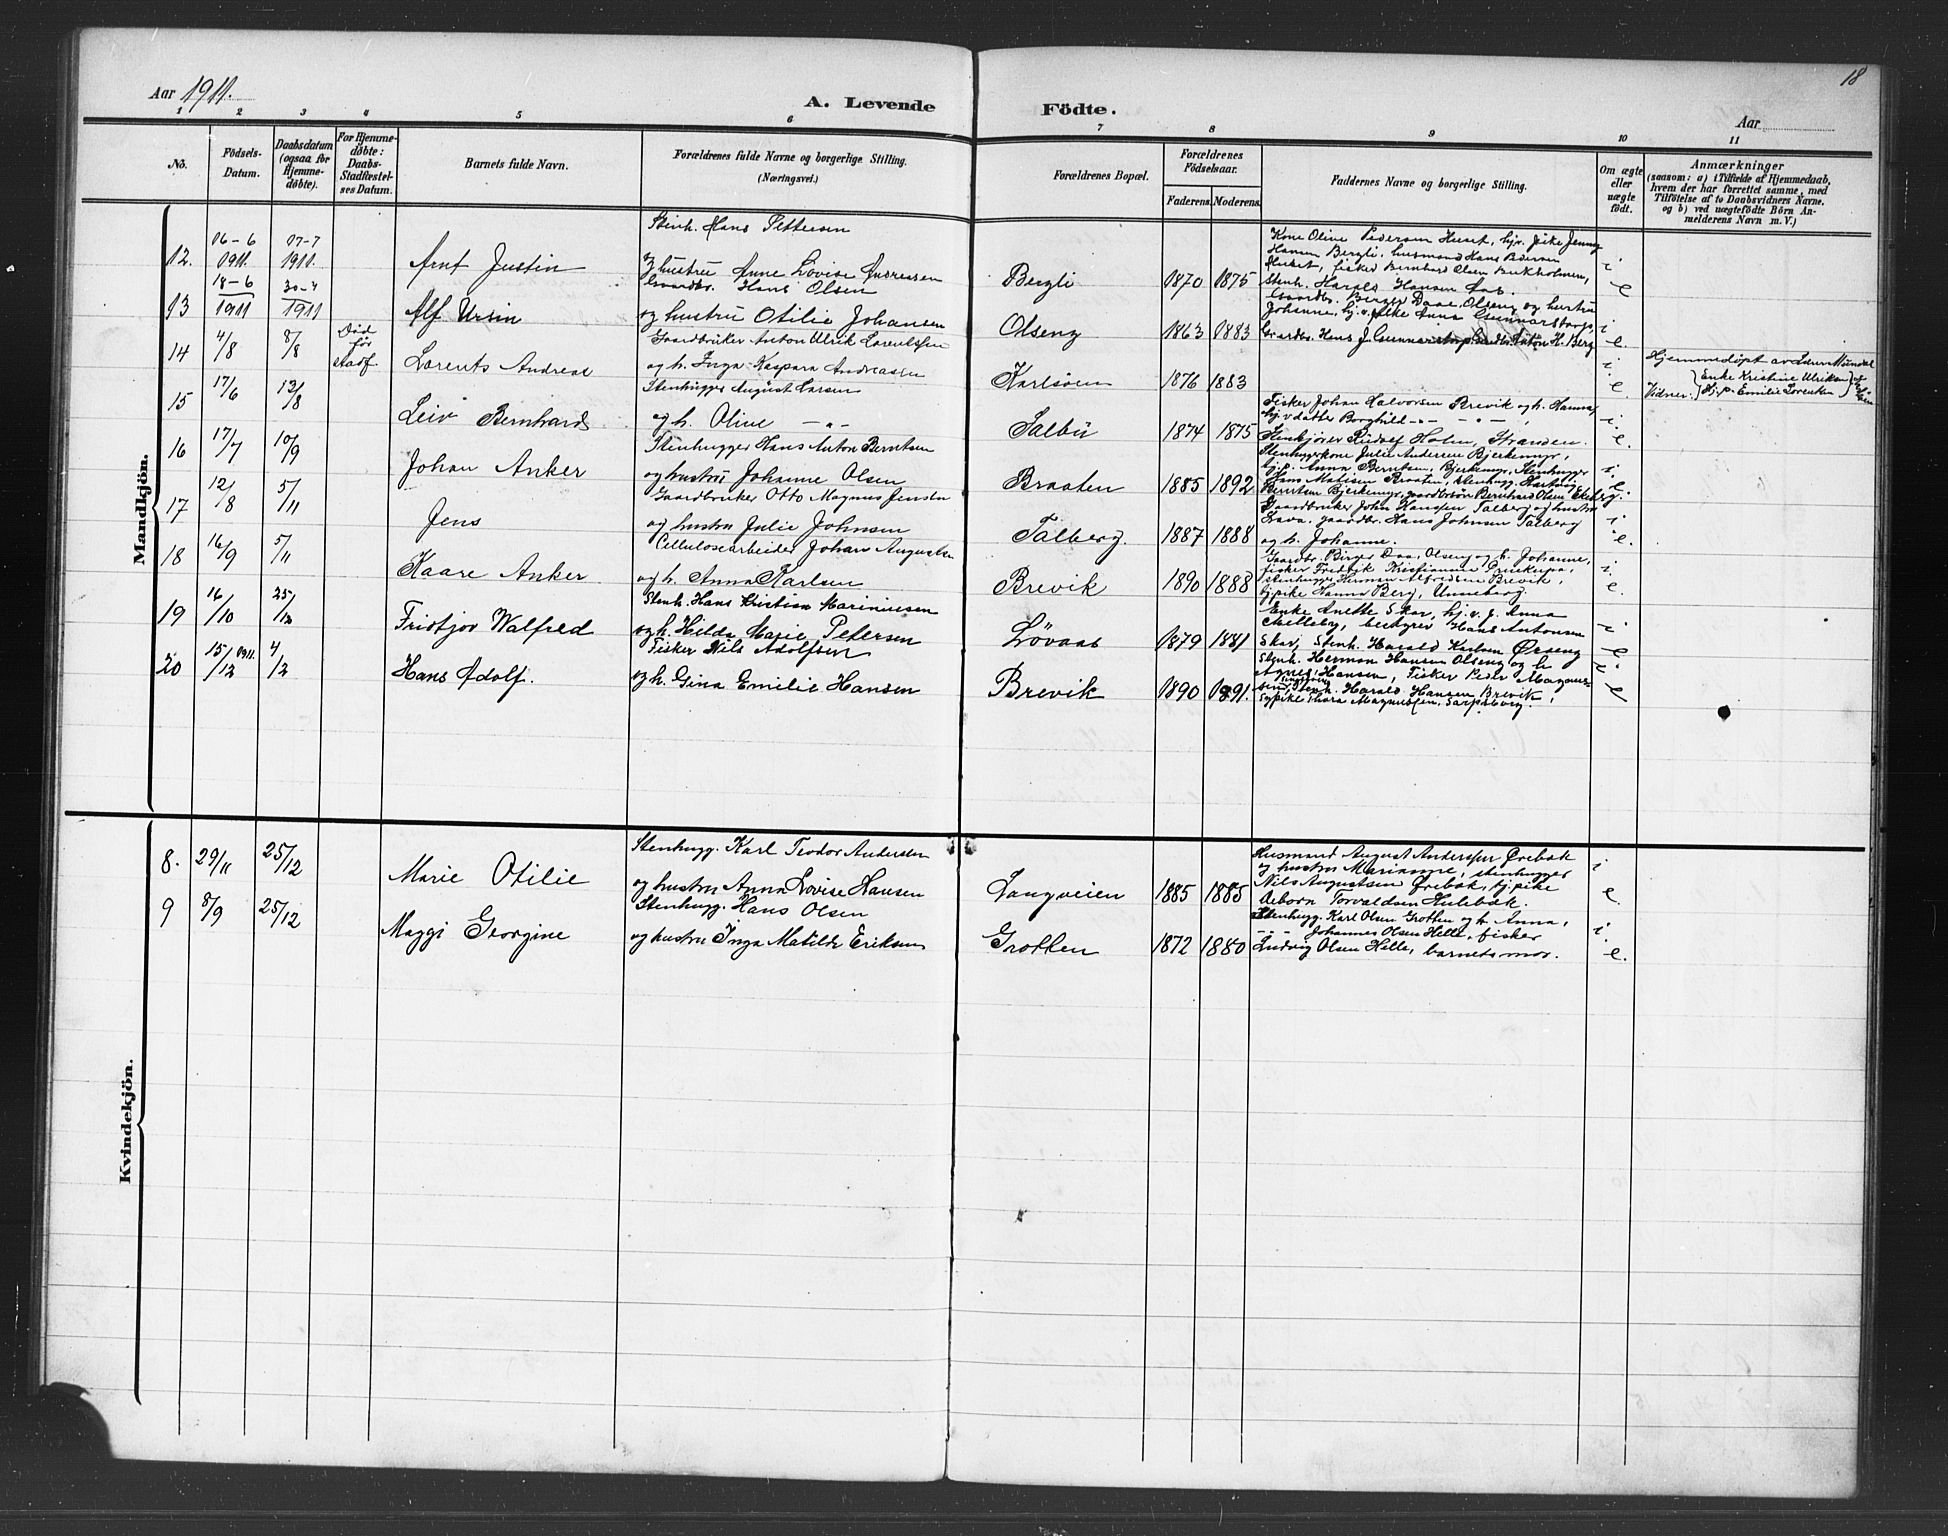 Aar 1911.
A. Levende Födte.
Aar
18
1 2 3 4 5 6 7 8 9 10 11
No.
Födsels-Datum.
Daabsdatum (ogsaa for Hjemme-döbte).
For Hjemme-döbte: Daabs-Stadfæstel-ses Datum.
Barnets fulde Navn.
Forældrenes fulde Navne og borgerlige Stilling.
(Næringsvei.)
Forældrenes Bopæl.
Forældrenes Födselsaar.
Faderens. Moderens.
Faddernes Navne og borgerlige Stilling.
Om ægte eller uægte födt.
Anmærkninger
(saasom: a) i Tilfælde af Hjemmedaab, hvem der har forrettet samme, med Tilföielse af to Daabsvidners Navne, og b) ved uægtefödte Börn An-melderens Navn m. V.)
Mandkjön.
12. 06-6 1911. 07-7 1911. Arnt Justin
Stenh. Hans Pettersen
og hustru Anne Lovise Andreassen
Bergli 1870 1875
Kone Oline Pedersen Huset, hjv. pike Jenny
Hansen Bergli, husmand Hans Pedersen
Huset, fisker Bernhard Olsen Bukholmen,
Stenh. Harald Hansen Aas.
i e
13 18-6 1911 30-7 1911 Alf Ursin
Gaardbr. Hans Olsen
og hustru Otilie Johansen
Olseng 1863 1883
Gaardbr. Berger Daae, Olseng og hustru
Johanne, hj.v. pike Anna Gunnarstorp,
Gaardbr. Hans J. Gunnarstorp, Anton H. Berg
i e.
14 4/8 8/8 Död för stadf. Lorents Andreas
Gaardbruker Anton Ulrik Lorentsen
og h. Inga Kaspara Andreassen
Karlsöen 1876 1883
i e.
Hjemmedöpt av
Vidner: Enke Kristine Ulriksen
Hj. p. Emilie Lorentsen
15 17/6 13/8 Leiv Bernhard
Stenhugger August Larsen
og h. Oline - " -
Salbu 1874 1875
Fisker Johan Halvorsen Brevik og h. Hanna,
hj.v. datter Borghild - " - - " -,
Rudolf Holm, Stranden.
i e.
16 17/7 10/9 Johan Anker
Stenhugger Hans Anton Berntsen
og hustru Johanne Olsen
Braaten 1885 1892
Stenhuggerkone Julie Andersen Bjerkemyr,
hj.p. Anna Berntsen, Bjerkemyr, Stenhugger
Hans Matisen Braaten, stenhugg. Hartvig
Berntsen Bjerkemyr, gaardbrsön Bernhard Olsen Ekeberg.
i e.
17 12/8 5/11 Jens
Gaardbruker Otto Magnus Jensen
og hustru Julie Johnsen
Talberg. 1887 1888
Gaardbruker John Hanssen Talberg og hustru
Lava, gaardbr. Hans Johnsen Talberg
og h. Johanne.
i e.
18 16/9 5/11 Kaare Anker
Cellulosearbeider Johan Augustsen
og h. Anna Karlsen
Brevik 1890 1888
Gaardbr. Birger Daa, Olseng og h. Johanne,
fisker Fredrik Kristiansen
stenhugger Herman Alfredsen Brevik,
tj.pike Hanna Berg, Unneberg.
i e.
19 16/10 25/12 Fridtjov Walfred
Stenh. Hans Kristian Mariniusen
og h. Hilda Marie Petersen
Lövaas 1879 1881
Enke Anette Skar, hj.v. j. Anna
Skilleby, bestyrer Hans Antonsen
Skar, Stenh. Harald Karlsen Örseng
i e
20 15/12 1911. 4/2 Hans Adolf.
Fisker Nils Adolfsen
og h. Gina Emilie Hansen
Brevik 1890 1891.
Stenh. Herman Hansen Olseng og hu
Agnes Hansen, Fisker Peder Magnus-
sen, Stenh. Harald Hansen Brevik,
sypike Thora Magnussen, Sarpsborg.
i e
Kvindekjön.
8. 29/11 25/12 Marie Otilie
Stenhugg. Karl Teodor Andersen
og hustru Anna Lovise Hansen
Langveien 1885 1885
Husmand August Andersen Örebæk
og hustru Marianne, stenhugger
Nils Augustsen Örebæk, tj.pike
Debora Torvaldsen Hulebæk.
i e.
9 8/9 25/12 Maggi Georgine
Stenhugg. Hans Olsen
og hustru Inga Matilde Eriksen
Grotten 1872 1880
Stenhugg. Karl Olsen Grotten og h. Anna,
- " - Johannes Olsen Helle, fisker
Ludvig Olsen Helle, barnets mor.
i e.